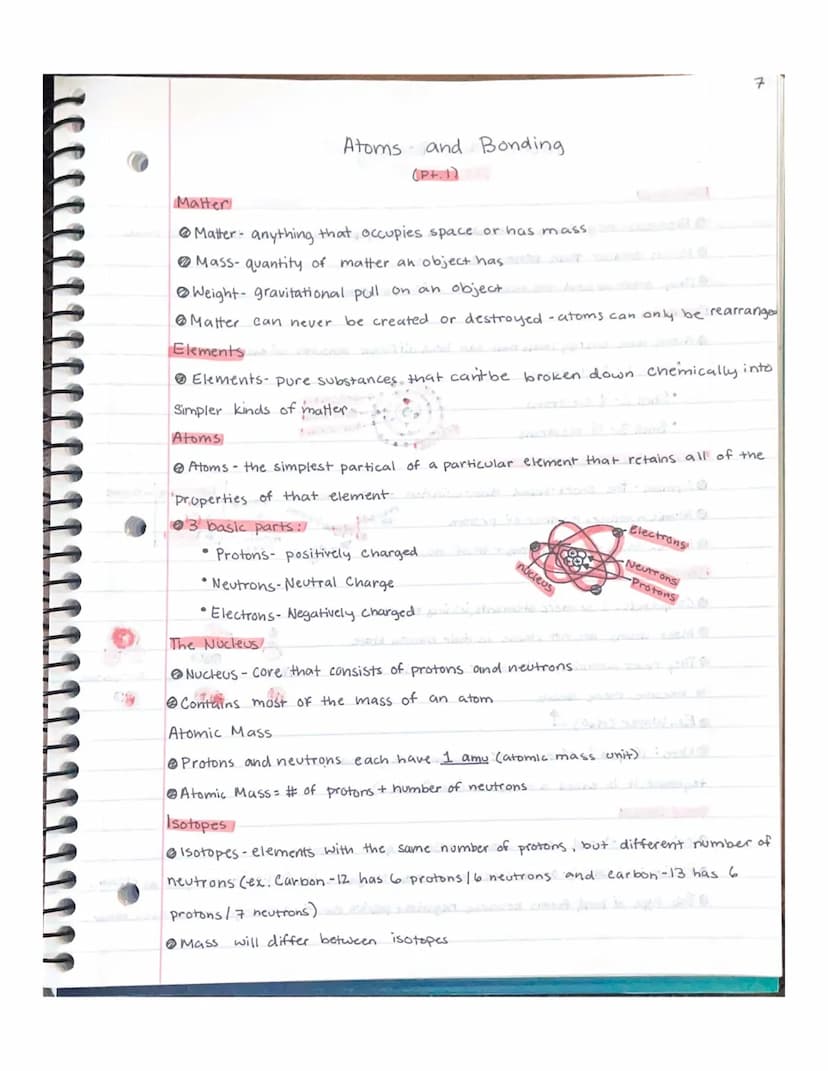 7
Atoms and Bonding
(Pt. 1)
Matter
Matter - anything that occupies space or has mass
Mass - quantity of matter an object has
Weight - gravitational pull on an object
Matter can never be created or destroyed - atoms can only be rearranged
Elements
Elements - pure substances that can't be broken down chemically into
simpler kinds of matter
Atoms
Atoms - the simplest partical of a particular element that retains all of the
properties of that element
3 basic parts:
• Protons - positively charged
• Neutrons - Neutral Charge
• Electrons - Negatively charged
Electrons
Neutrons
Protons
nucleus
The Nucleus
Nucleus - core that consists of protons and neutrons
Contains most of the mass of an atom
Atomic Mass
Protons and neutrons each have 1 amu (atomic mass unit)
Atomic Mass = # of protons + number of neutrons
Isotopes
Isotopes - elements with the same number of protons, but different number of
neutrons (ex. Carbon-12 has 6 protons/6 neutrons and carbon-13 has 6
protons/7 neutrons)
Mass will differ between isotopes